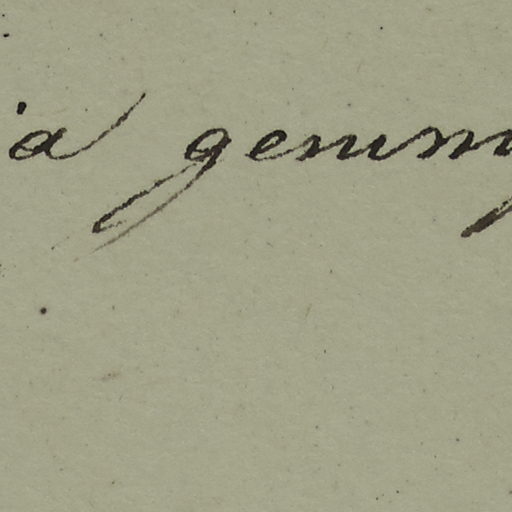 ia gemm